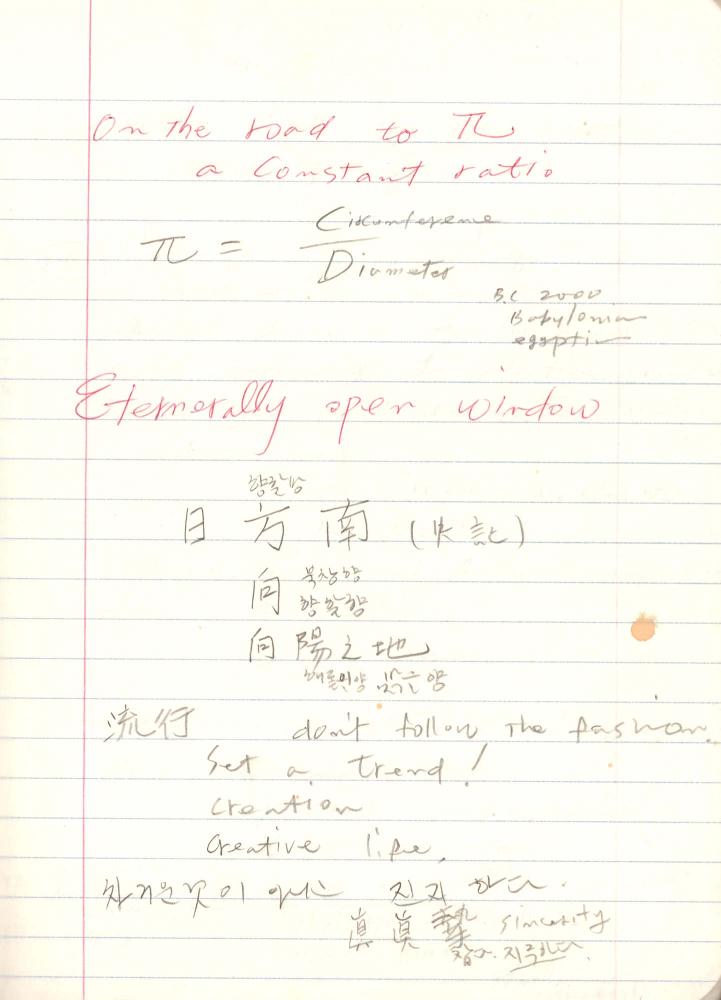 On the road to π
a constant ratio
π = Circumference
Diameter
B.C 2000
Babylonian
egyptian
Eternerally open window
향할방
日 方 南 (史記)
向 북창향
향할향
向陽之地
해돋이양
流行 don't follow the fashion.
Set a trend!
Creation
Creative life,
차거운것이 아니 진지하다.
眞 眞 摯 sincerity
잡다. 지극하다.